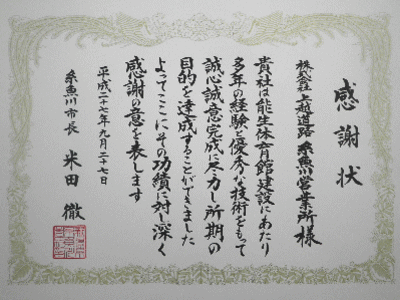 感謝状
株式会社上越道路 糸魚川営業所 様
貴社は能生体育館建設にあたり
多年の経験と優秀な技術をもって
誠心誠意完成に尽力し所期の
目的を達成することができました
よってここにその功績に対し深く
感謝の意を表します
平成二十七年九月二十七日
糸魚川市長 米田 徹